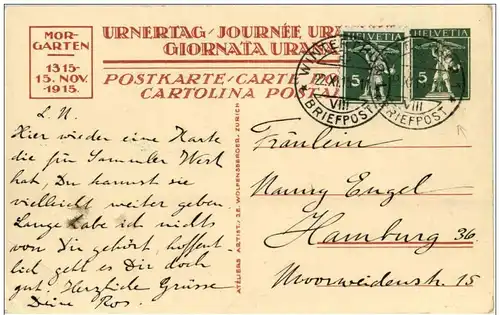 MOR-
GARTEN
1315-
15. NOV.
1915.
URNERTAG / JOURNÉE URA
GIORNATA URA
POSTKARTE / CARTE
CARTOLINA POSTA
HELVETIA
5
HELVETIA
5
WINTER
22.XI.
VIII
BRIEFPOST
VIII
BRIEFPOST
L. N.
Hier wieder eine Karte
die für Sammler Wert
hat, Du kannst sie
vielleicht weiter geben.
Lange habe ich nichts
von Dir gehört, hoffent
lich geht es Dir doch
gut. Herzliche Grüsse
Deine Ros.
ATELIERS ARTIST. J.E. WOLFENSBERGER, ZURICH
Fräulein
Nanny Engel
Hamburg 36.
Moorweidenstr. 15